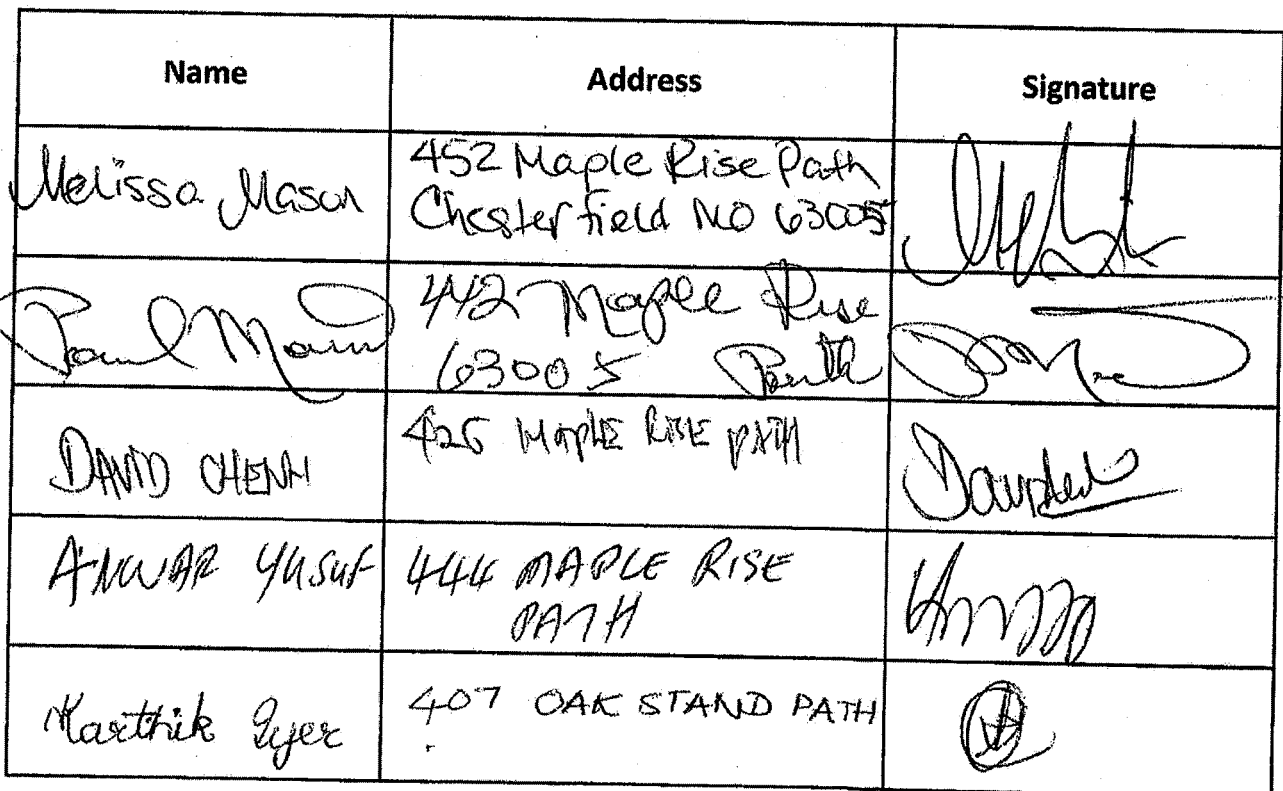 Name Address Signature
Melissa Mason 452 Maple Rise Path
Chesterfield MO 63005
Paul 442 Maple Rise
63005 Path
DAVID CHENH 426 MAPLE RISE PATH
ANWAR YUSUF 444 MAPLE RISE
PATH
Karthik Iyer 407 OAK STAND PATH